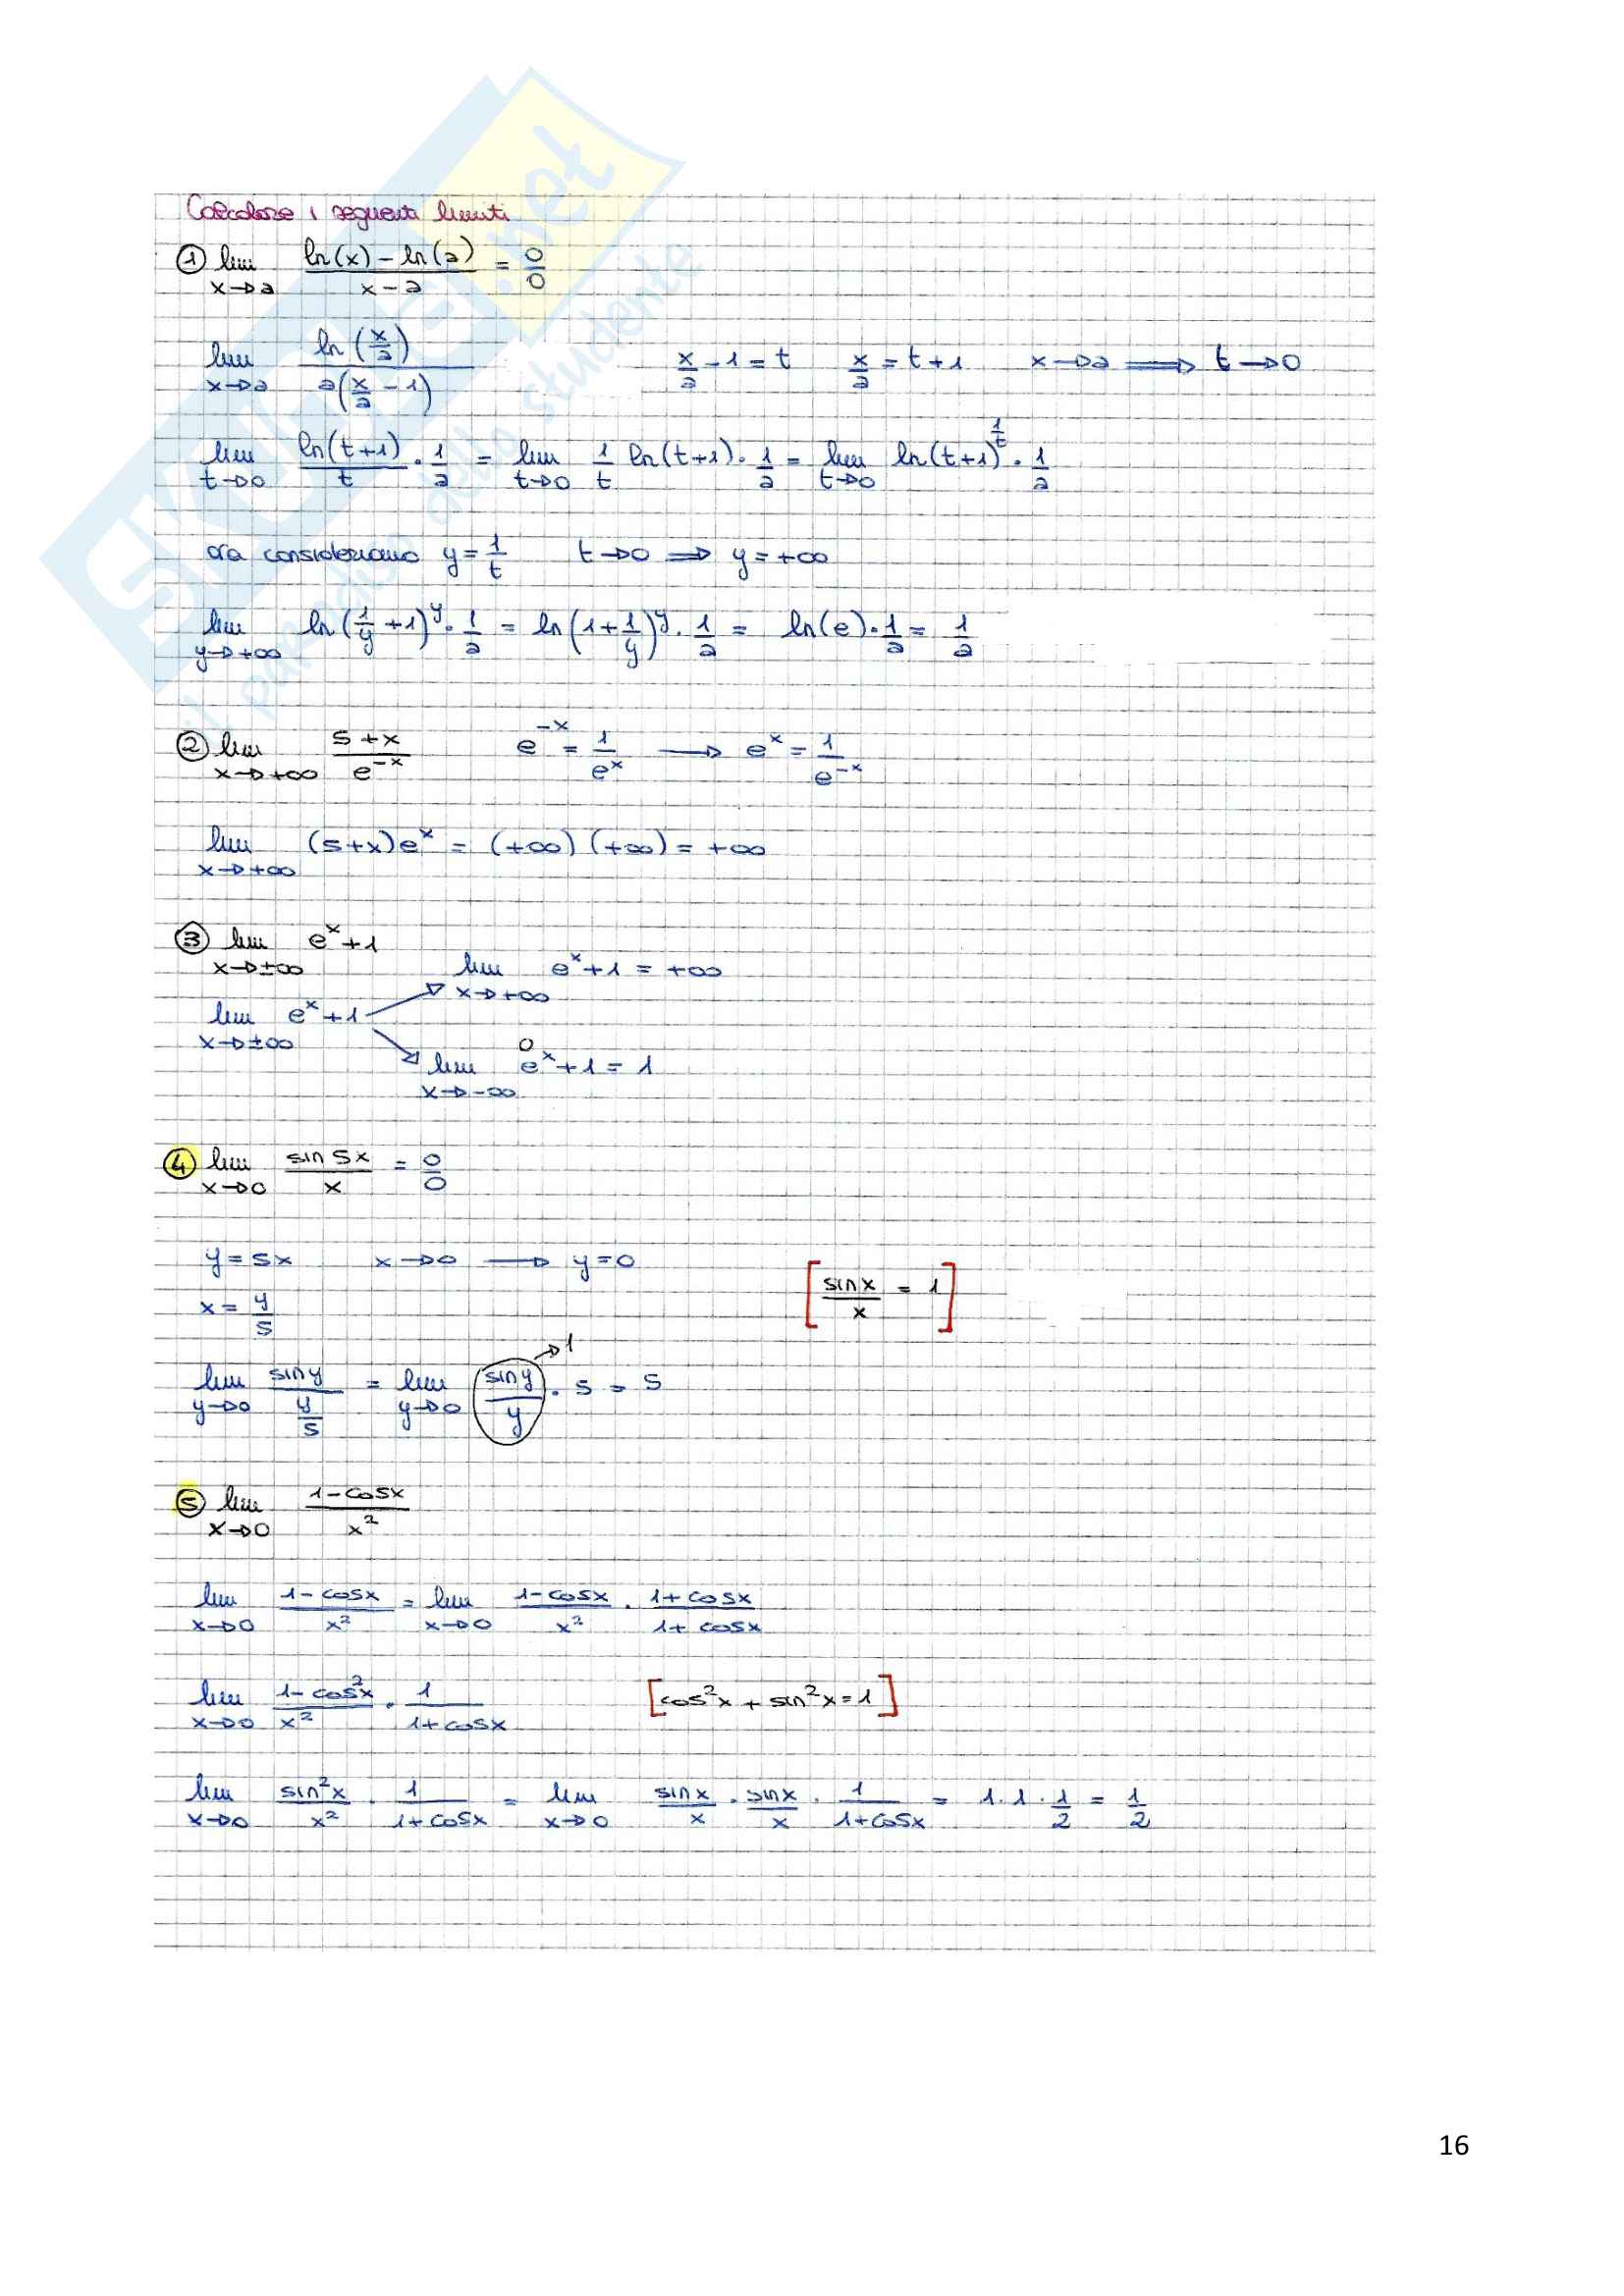 SKUOLA.net
il paradiso dello studente
Calcolare i seguenti limiti
① lim x→a (ln(x) - ln(a))/(x - a) = 0/0
lim x→a ln(x/a)/(a(x/a - 1))    x/a - 1 = t    x/a = t + 1    x→a ⟹ t→0
lim t→0 ln(t+1)/t · 1/a = lim t→0 1/t ln(t+1) · 1/a = lim t→0 ln(t+1)^(1/t) · 1/a
ora consideriamo y = 1/t    t→0 ⟹ y = +∞
lim y→+∞ ln(1/y + 1)^y · 1/a = ln(1 + 1/y)^y · 1/a = ln(e) · 1/a = 1/a
② lim x→+∞ (5+x)/e^-x    e^-x = 1/e^x ⟶ e^x = 1/e^-x
lim x→+∞ (5+x)e^x = (+∞)(+∞) = +∞
③ lim x→±∞ e^x + 1
lim x→+∞ e^x + 1 = +∞
lim x→±∞ e^x + 1
0
lim x→-∞ e^x + 1 = 1
④ lim x→0 sin5x/x = 0/0
y = 5x    x→0 ⟶ y = 0    [sinx/x = 1]
x = y/5
lim y→0 siny/(y/5) = lim y→0 (siny/y) →1 · 5 = 5
⑤ lim x→0 (1-cosx)/x²
lim x→0 (1-cosx)/x² = lim x→0 (1-cosx)/x² · (1+cosx)/(1+cosx)
lim x→0 (1-cos²x)/x² · 1/(1+cosx)    [cos²x + sin²x = 1]
lim x→0 sin²x/x² · 1/(1+cosx) = lim x→0 sinx/x · sinx/x · 1/(1+cosx) = 1·1·1/2 = 1/2
16